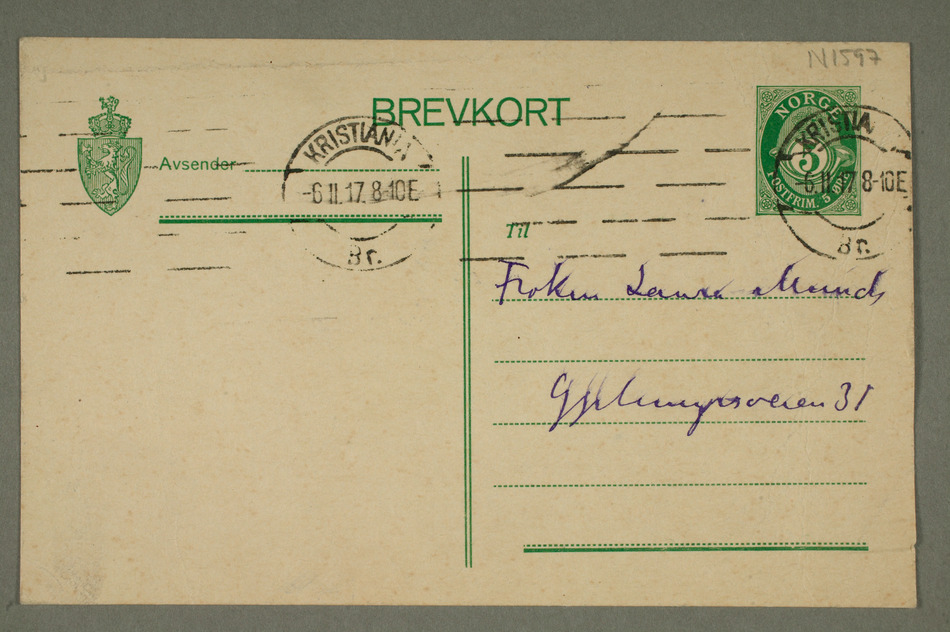 N1597
BREVKORT
NORGE
5
POSTFRIM. 5 ØRE
KRISTIANIA
-6 II. 17. 8-10E
Br.
KRISTIA
-6 II. 17. 8-10E
Br.
Avsender
Til
Frøken Laura Munch
31